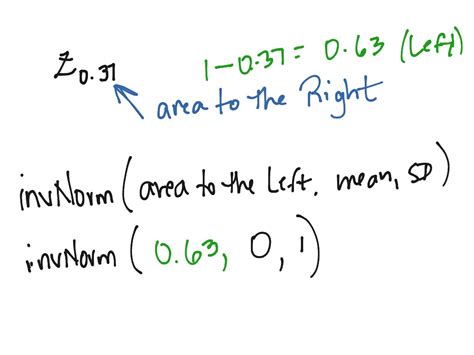 Z0.37
1-0.37= 0.63 (Left)
area to the Right
invNorm(area to the Left, mean, SD)
invNorm(0.63, 0, 1)